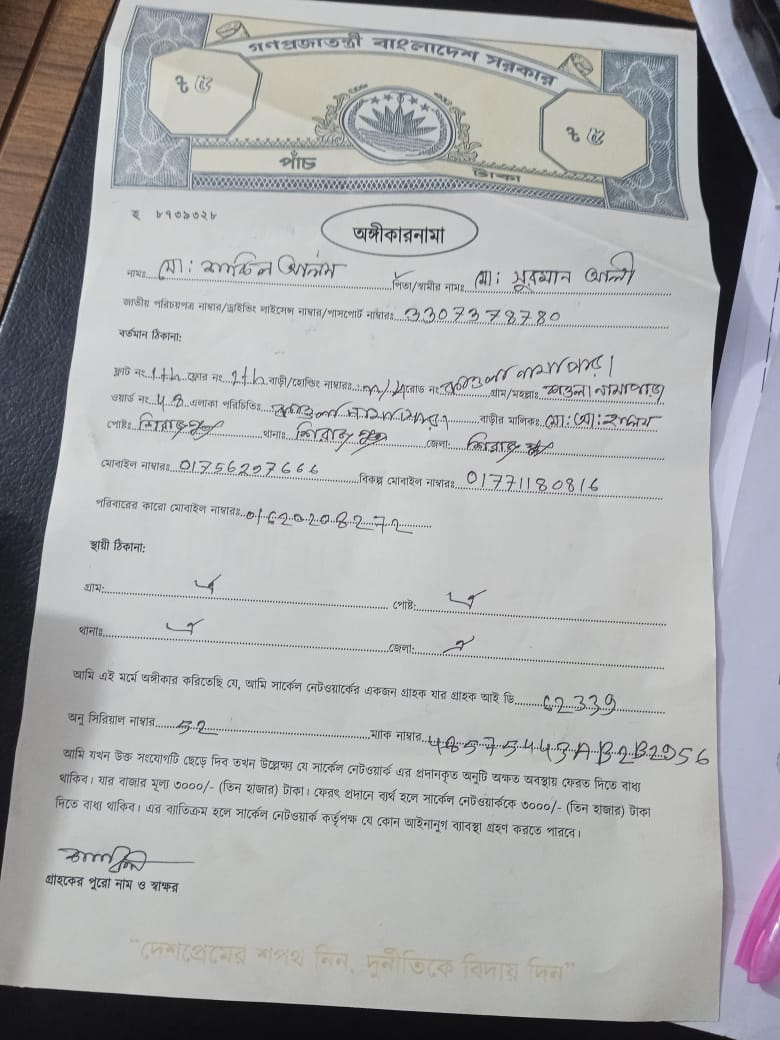 গণপ্রজাতন্ত্রী বাংলাদেশ সরকার
৳ ৫ ৳ ৫
পাঁচ টাকা
অঙ্গীকারনামা
নামঃ মো: শাকিল আলম পিতা/স্বামীর নামঃ মো: সুরমান আলী
জাতীয় পরিচয়পত্র নাম্বার/ড্রাইভিং লাইসেন্স নাম্বার/পাসপোর্ট নাম্বারঃ 3307378780
বর্তমান ঠিকানা:
ফ্লাট নং ফ্লোর নং বাড়ী/হোল্ডিং নাম্বারঃ রোড নং গ্রাম/মহল্লাঃ কাওলা নামাপাড়া
ওয়ার্ড নং এলাকা পরিচিতিঃ বাড়ীর মালিকঃ মো: আ: হালিম
পোষ্টঃ থানাঃ জেলা:
মোবাইল নাম্বারঃ 01756297666 বিকল্প মোবাইল নাম্বারঃ 01771180816
পরিবারের কারো মোবাইল নাম্বারঃ 01620208272
স্থায়ী ঠিকানা:
গ্রাম: পোষ্ট:
থানাঃ জেলা:
আমি এই মর্মে অঙ্গীকার করিতেছি যে, আমি সার্কেল নেটওয়ার্কের একজন গ্রাহক যার গ্রাহক আই ডি 62339
অনু সিরিয়াল নাম্বার 52 ম্যাক নাম্বার
আমি যখন উক্ত সংযোগটি ছেড়ে দিব তখন উল্লেক্ষ্য যে সার্কেল নেটওয়ার্ক এর প্রদানকৃত অনুটি অক্ষত অবস্থায় ফেরত দিতে বাধ্য
থাকিব। যার বাজার মূল্য ৩০০০/- (তিন হাজার) টাকা। ফেরৎ প্রদানে ব্যর্থ হলে সার্কেল নেটওয়ার্ককে ৩০০০/- (তিন হাজার) টাকা
দিতে বাধ্য থাকিব। এর ব্যতিক্রম হলে সার্কেল নেটওয়ার্ক কর্তৃপক্ষ যে কোন আইনানুগ ব্যাবস্থা গ্রহণ করতে পারবে।
গ্রাহকের পুরো নাম ও স্বাক্ষর
"দেশপ্রেমের শপথ নিন, দুর্নীতিকে বিদায় দিন"